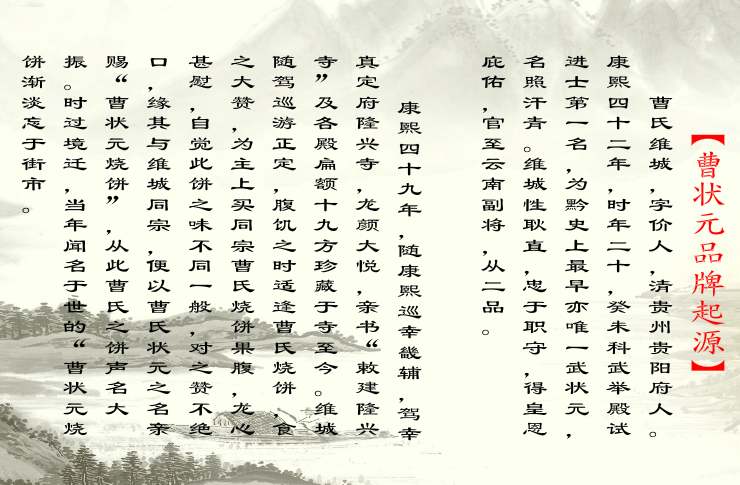 【曹状元品牌起源】
曹氏维城,字价人,清贵州贵阳府人。
康熙四十二年,时年二十,癸未科武举殿试
进士第一名,为黔史上最早亦唯一武状元,
名照汗青。维城性耿直,忠于职守,得皇恩
庇佑,官至云南副将,从二品。
康熙四十九年,随康熙巡幸畿辅,驾幸
真定府隆兴寺,龙颜大悦,亲书“敕建隆兴
寺”及各殿扁额十九方珍藏于寺至今。维城
随驾巡游正定,腹饥之时适逢曹氏烧饼,食
之大赞,为主上买同宗曹氏烧饼果腹,龙心
甚慰,自觉此饼之味不同一般,对之赞不绝
口,缘其与维城同宗,便以曹氏状元之名亲
赐“曹状元烧饼”,从此曹氏之饼声名大
振。时过境迁,当年闻名于世的“曹状元烧
饼渐淡忘于街市。